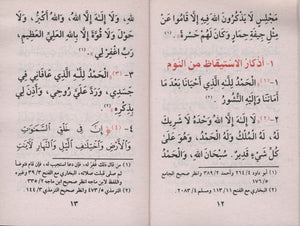 مَجْلِسٍ لَا يَذْكُرُونَ اللَّهَ فِيهِ إِلَّا قَامُوا عَنْ
مِثْلِ جِيفَةِ حِمَارٍ وَكَانَ لَهُمْ حَسْرَةً».(١)
١- أذكارُ الاستيقاظ من النوم
١-(١) «الْحَمْدُ لِلَّهِ الَّذِي أَحْيَانَا بَعْدَ مَا
أَمَاتَنَا وَإِلَيْهِ النُّشُورُ».(٢)
٢-(٢) «لَا إِلَهَ إِلَّا اللَّهُ وَحْدَهُ لَا شَرِيكَ
لَهُ، لَهُ الْمُلْكُ وَلَهُ الْحَمْدُ، وَهُوَ عَلَى
كُلِّ شَيْءٍ قَدِيرٌ. سُبْحَانَ اللَّهِ، وَالْحَمْدُ
(١) أبو داود ٢٦٤/٤ وأحمد ٣٨٩/٢ وانظر صحيح الجامع
١٧٦/٥
(٢) البخاري مع الفتح ١١٣/١١ ومسلم ٢٠٨٣/٤
١٢
لِلَّهِ، وَلَا إِلَهَ إِلَّا اللَّهُ، وَاللَّهُ أَكْبَرُ، وَلَا
حَوْلَ وَلَا قُوَّةَ إِلَّا بِاللَّهِ الْعَلِيِّ الْعَظِيمِ،
رَبِّ اغْفِرْ لِي».(١)
٣-(٣) «الْحَمْدُ لِلَّهِ الَّذِي عَافَانِي فِي
جَسَدِي، وَرَدَّ عَلَيَّ رُوحِي، وَأَذِنَ لِي
بِذِكْرِهِ».(٢)
٤-(٤) ﴿إِنَّ فِي خَلْقِ السَّمَوَاتِ
وَالْأَرْضِ وَاخْتِلَافِ اللَّيْلِ وَالنَّهَارِ لَآيَاتٍ
(١) من قال ذلك غُفِرَ له، فإن دعا استجيب له، فإن قام فتوضأ
ثم صلى قبلت صلاته، البخاري مع الفتح ٣٩/٣ وغيره
واللفظ لابن ماجه انظر صحيح ابن ماجه ٣٣٥/٢
(٢) الترمذي ٤٧٣/٥ وانظر صحيح الترمذي ١٤٤/٣
١٣